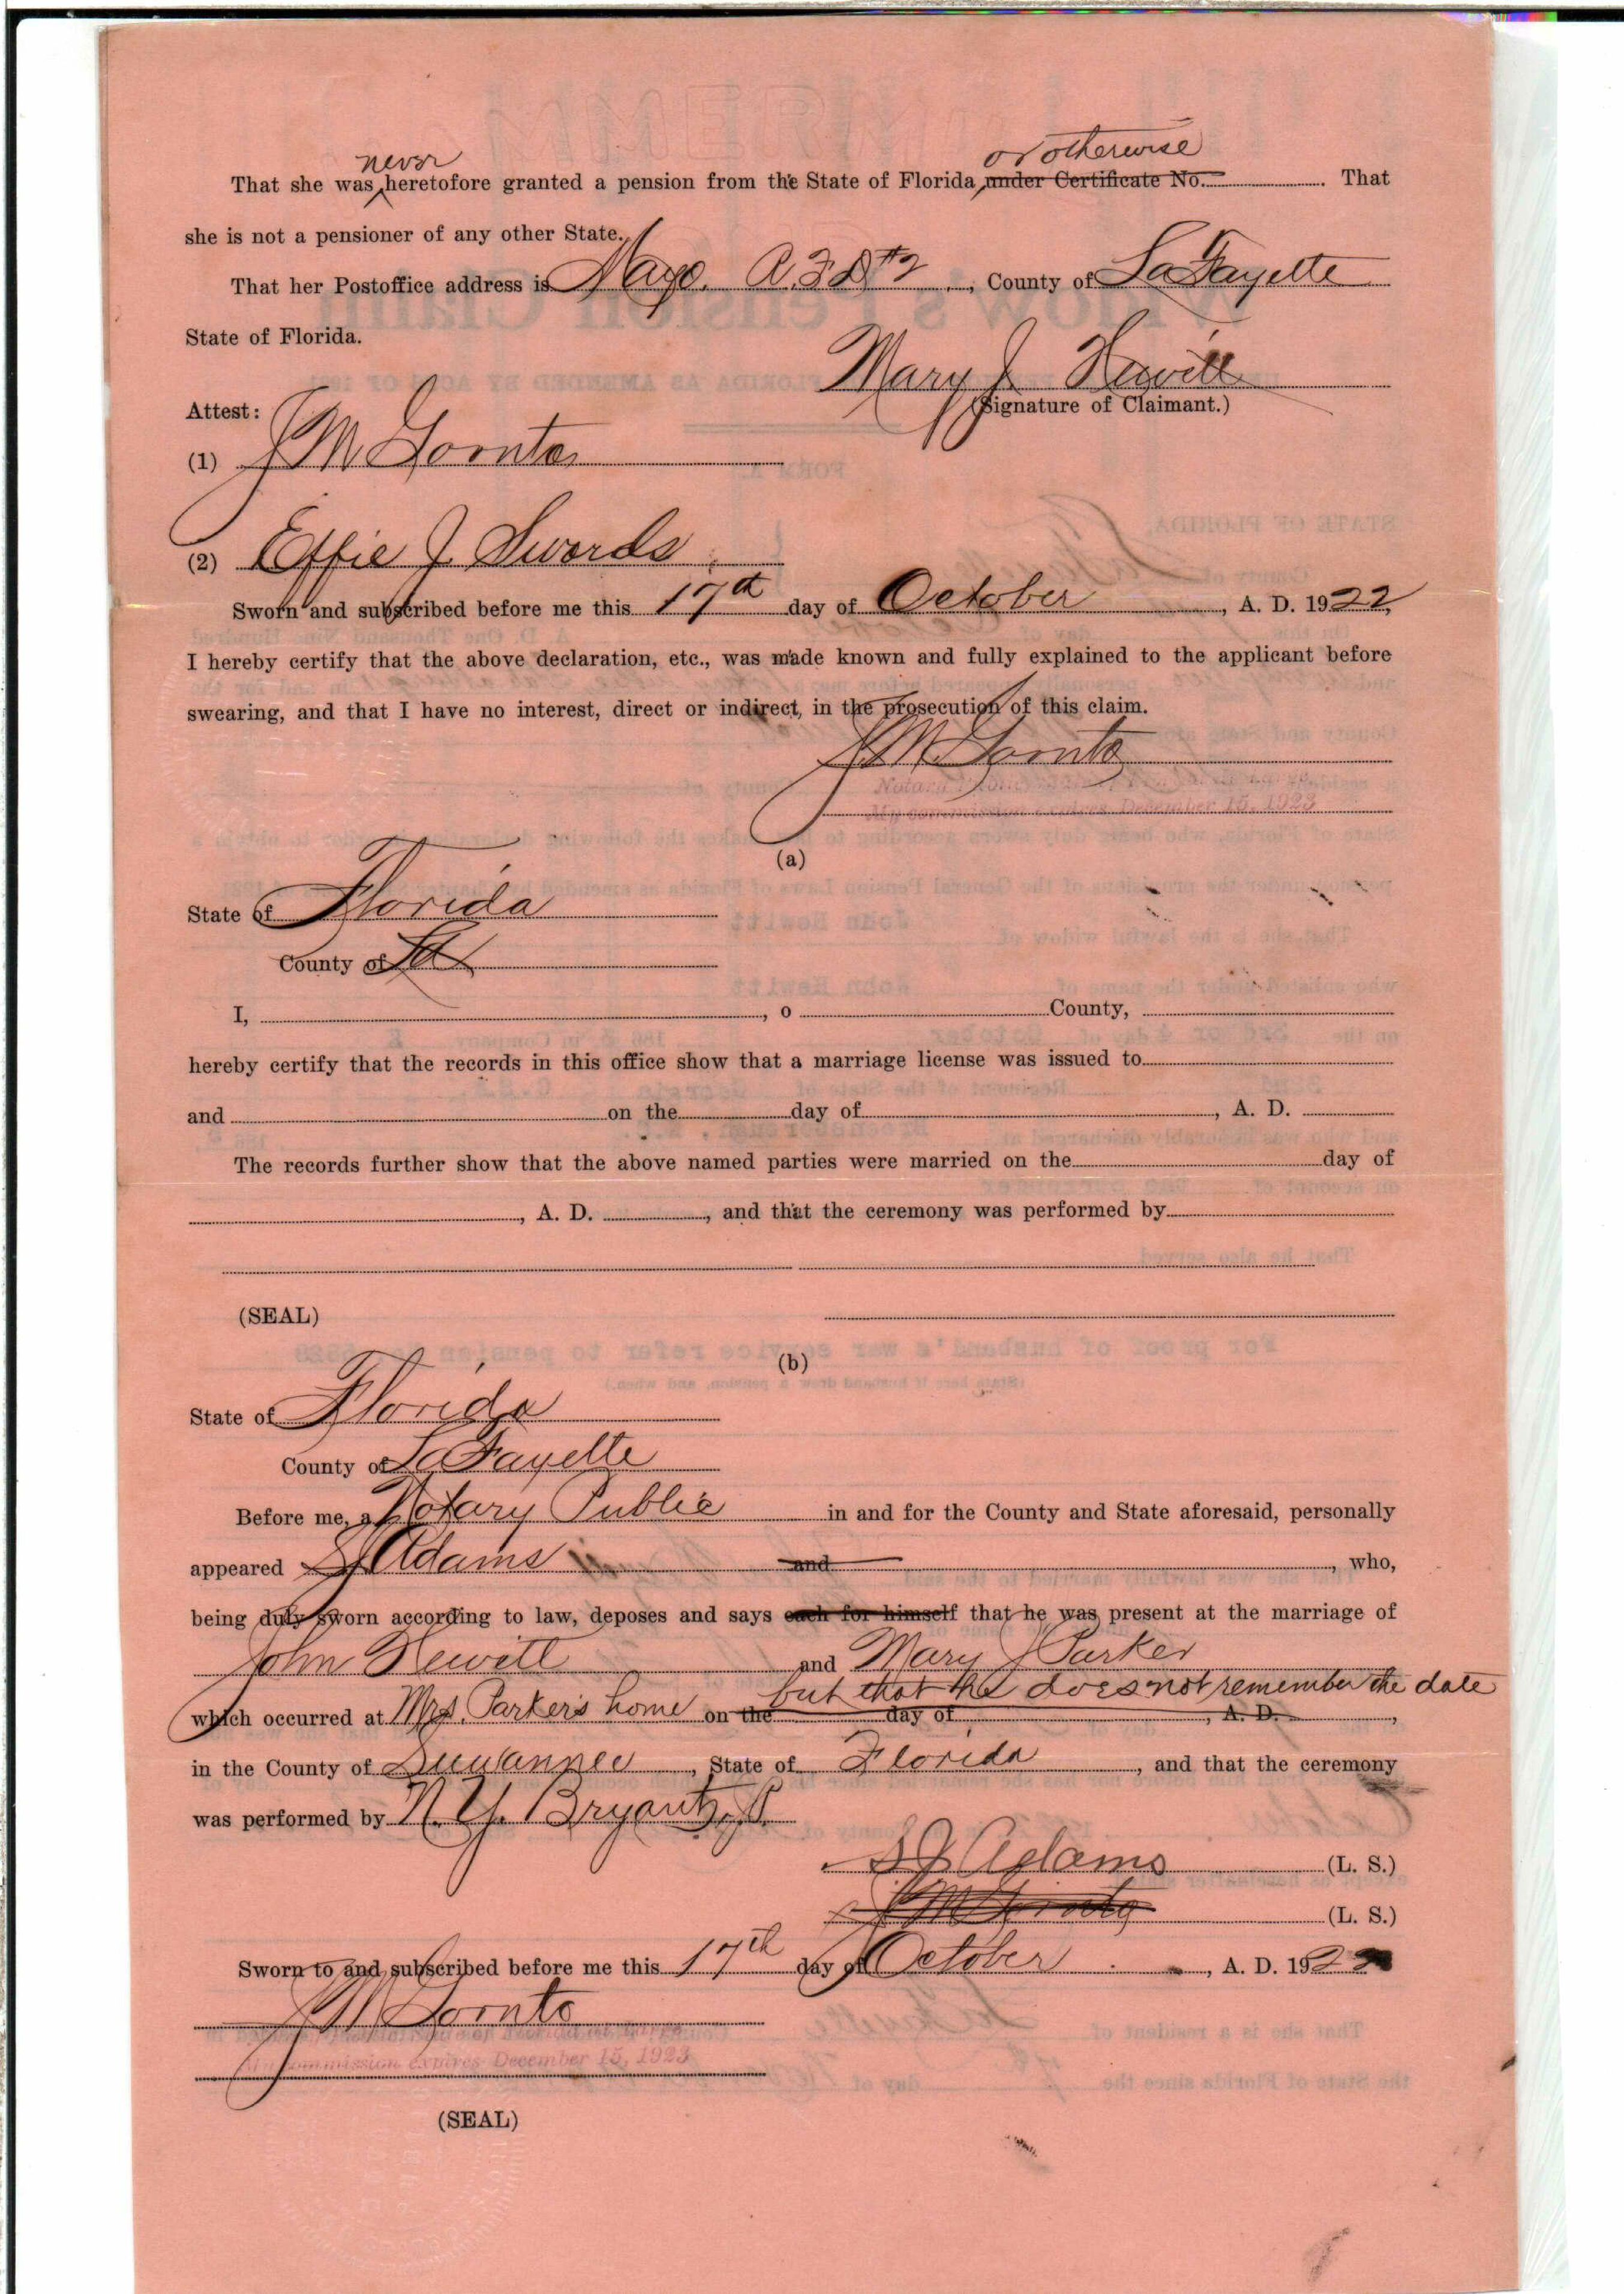 never or otherwise
That she was heretofore granted a pension from the State of Florida under Certificate No. . That
she is not a pensioner of any other State.
That her Postoffice address is Mayo. R.F.D #2 , County of LaFayette
State of Florida.
Mary J Hewitt
(Signature of Claimant.)
Attest:
(1) J M Gornto
(2) Effie J Swords
Sworn and subscribed before me this 17th day of October , A. D. 1922,
I hereby certify that the above declaration, etc., was made known and fully explained to the applicant before
swearing, and that I have no interest, direct or indirect, in the prosecution of this claim.
J M Gornto
My commission expires December 15, 1923
(a)
State of Florida
County of La
I, , o County,
hereby certify that the records in this office show that a marriage license was issued to
and on the day of , A. D.
The records further show that the above named parties were married on the day of
, A. D. , and that the ceremony was performed by
(SEAL)
(b)
State of Florida
County of LaFayette
Before me, a Notary Public in and for the County and State aforesaid, personally
appeared S J Adams and , who,
being duly sworn according to law, deposes and says each for himself that he was present at the marriage of
John Hewitt and Mary J Parker
but that he does not remember the date
which occurred at Mrs. Parker's home on the day of , A. D. ,
in the County of Suwannee , State of Florida , and that the ceremony
was performed by N. Y. Bryant
S J Adams (L. S.)
J M Gornto (L. S.)
Sworn to and subscribed before me this 17th day of October , A. D. 1922
J M Gornto
My commission expires December 15, 1923
(SEAL)